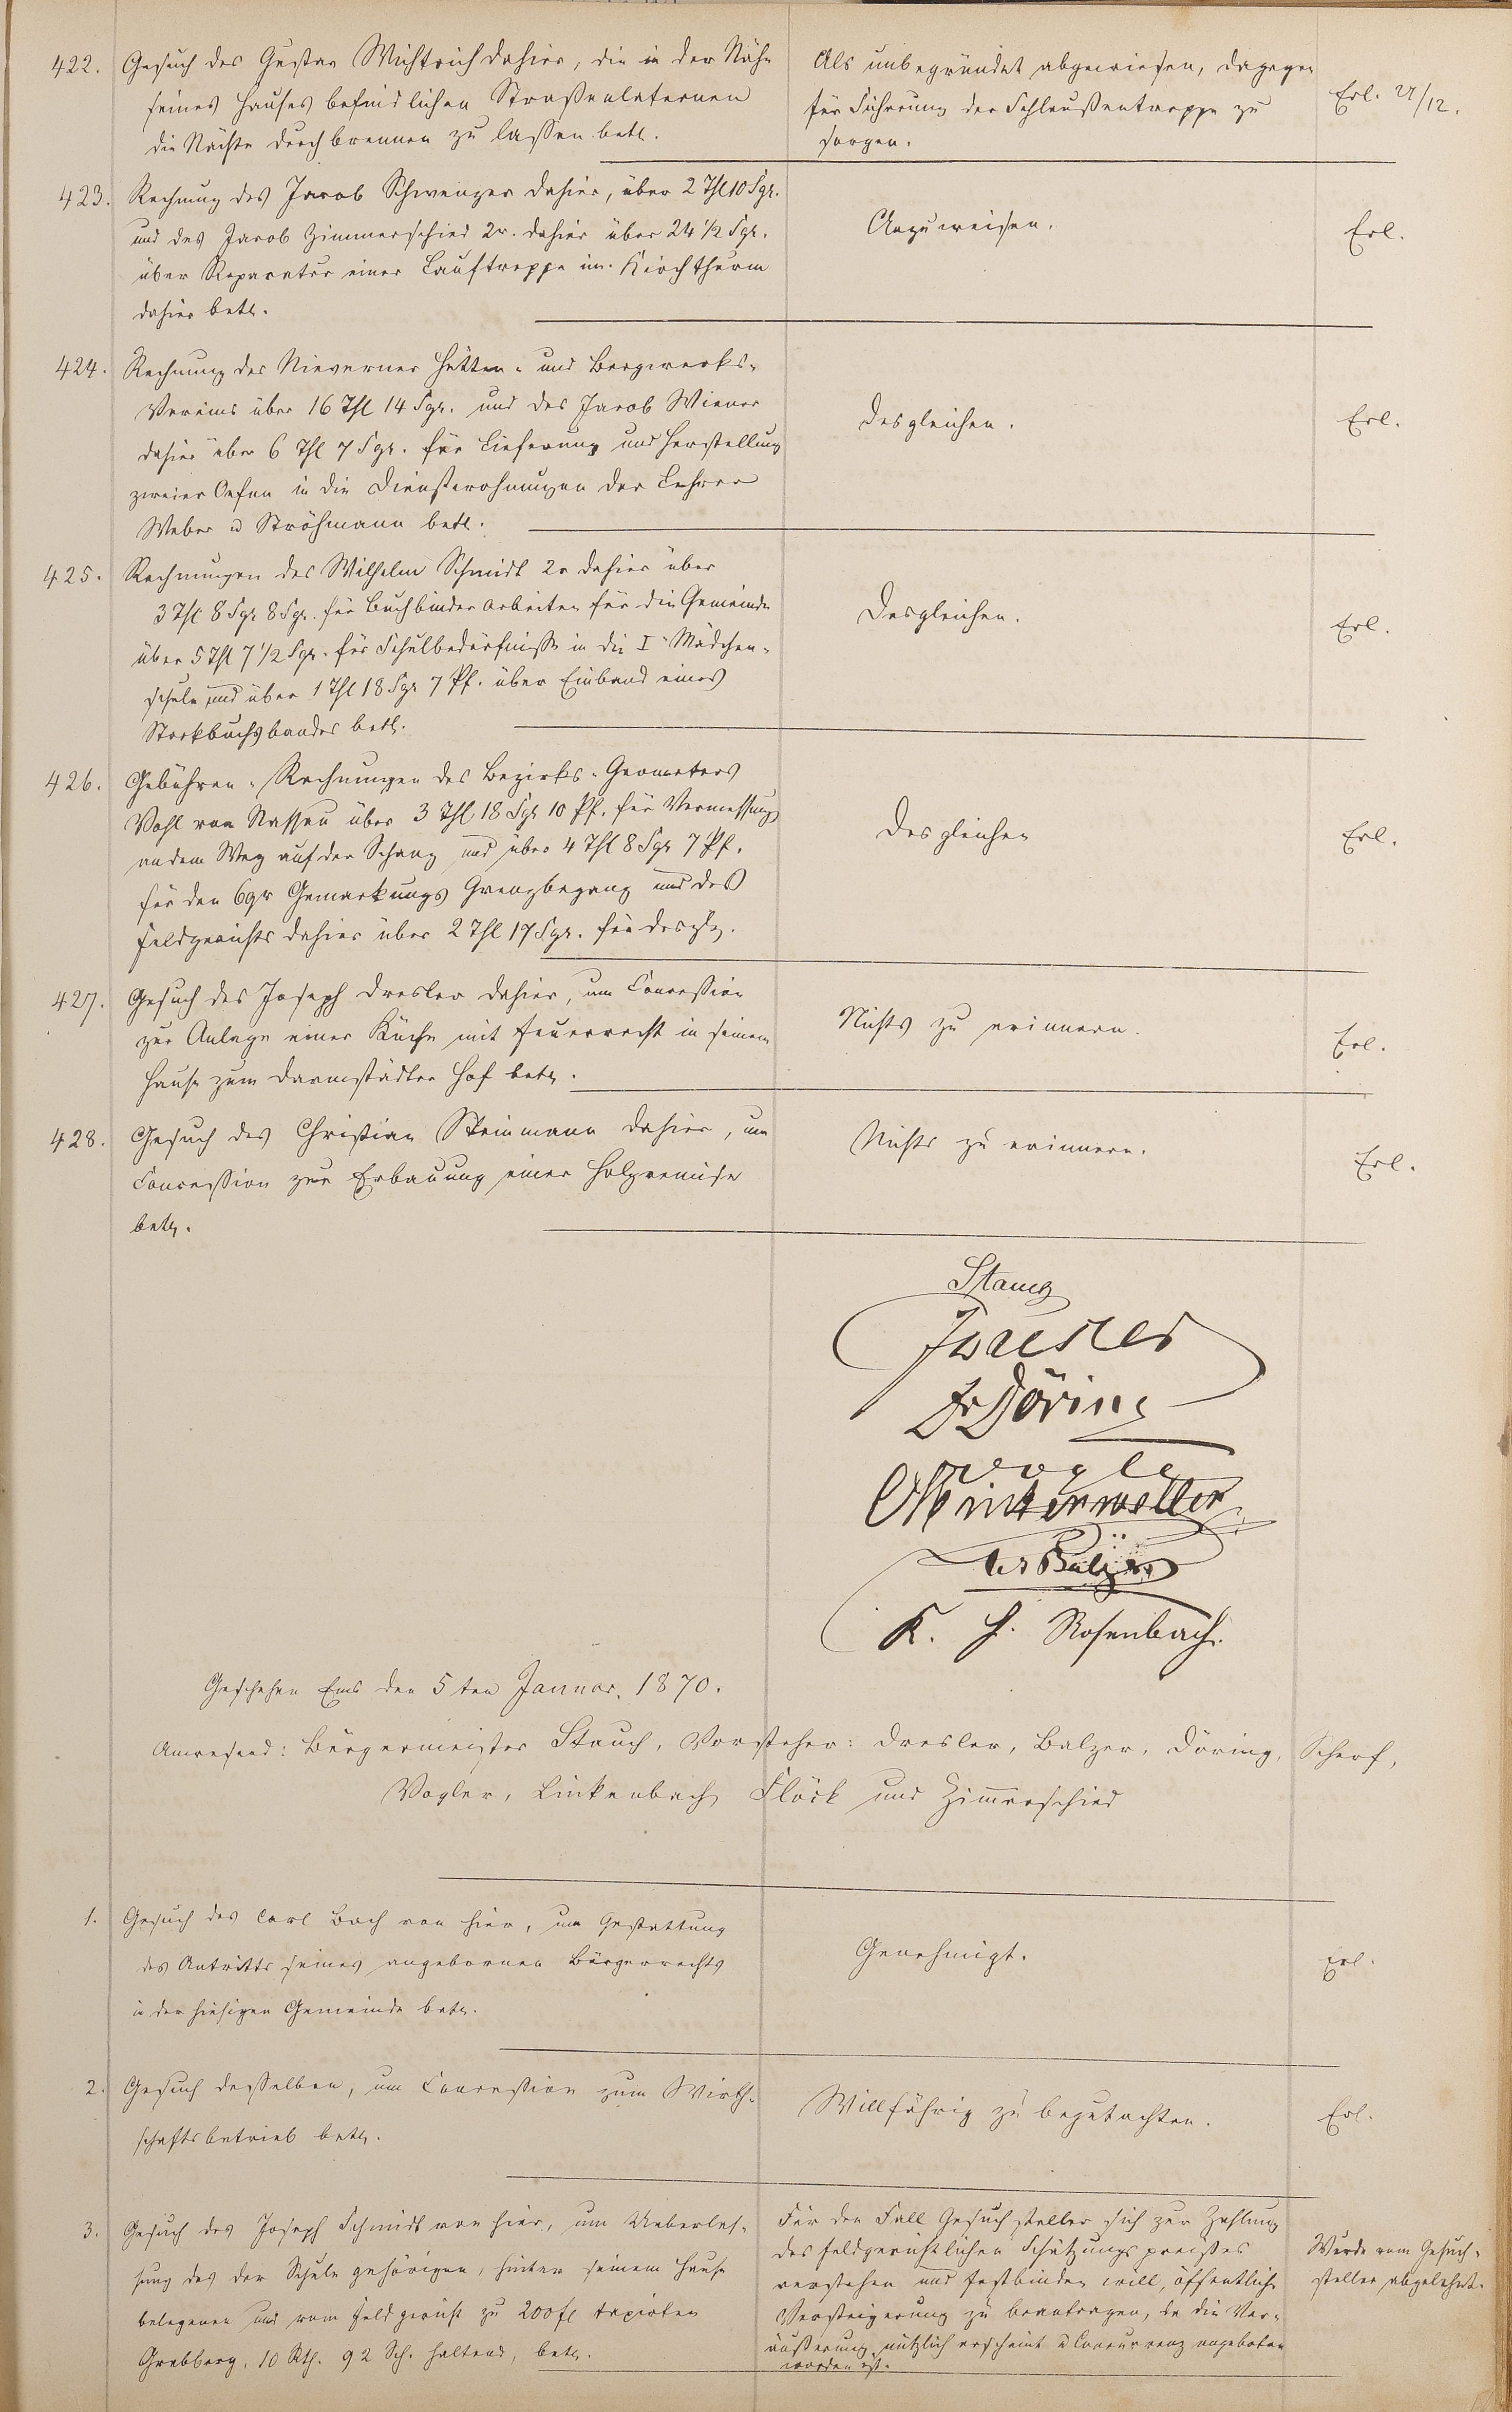 422. Gesuch des Gustav Wichtrich dahier, die in der Nähe
seines Hauses befindlichen Straßenlaternen
die Nächte durchbrennen zu lassen betr.
Als unbegründet abgewiesen, dagegen
für Führung der Schleußentreppe zu
sorgen.
Erl. 27/12.
423. Rechnung des Jacob Schweizer dahier, über 2 Thl 10 Sgr.
und des Jacob Zimmerschied 2r. dahier über 24 1/2 Sgr.
über Reparatur einer Lauftreppe im Kirchthurm
dahier betr.
Anzuweisen.
Erl.
424. Rechnung des Nieverner Hütten- und Bergwerks-
Vereins über 16 Thl 14 Sgr. und des Jacob Wiener
dahier über 6 Thl 7 Sgr. für Lieferung und Herstellung
zweier Oefen in die Dienstwohnungen der Lehrer
Weber u Ströhmann betr.
Desgleichen.
Erl.
425. Rechnungen des Wilhelm Schmidt 2r dahier über
3 Thl 8 Sgr 8 Sgr. für Buchbinder Arbeiten für die Gemeinde
über 5 Thl 7 1/2 Sgr. für Schulbedürfnisse in die I. Mädchen-
schule und über 1 Thl 18 Sgr 7 Pf. über Einband eines
Stockbuchsbandes betr.
Desgleichen.
Erl.
426. Gebühren-Rechnungen des Bezirks-Geometers
Vohl von Nassau über 3 Thl 18 Sgr 10 Pf. für Vermessung
an dem Weg auf der Schanz und über 4 Thl 8 Sgr 7 Pf.
für den 69r Gemarkungs Grenzbegang und des
Feldgerichts dahier über 2 Thl 17 Sgr. für desgl.
Desgleichen
Erl.
427. Gesuch des Joseph Dresler dahier, um Concession
zur Anlage einer Küche mit Feuerrecht in seinem
Hause zum Darmstädter Hof betr.
Nichts zu erinnern.
Erl.
428. Gesuch des Christian Steinmann dahier, um
Concession zur Erbauung einer Holzremise
betr.
Nichts zu erinnern.
Erl.
Stauch
Dresler
Döring
Vogler
Winterwerber
Balzer
K. H. Rosenbach.
Geschehen Ems den 5ten Januar. 1870.
Anwesend: Bürgermeister Stauch, Vorsteher: Dresler, Balzer, Döring, Scherf,
Vogler, Linkenbach, Flöck und Zimmerschied
1. Gesuch des Carl Bach von hier, um Gestattung
des Antritts seines angebornen Bürgerrechts
in der hiesigen Gemeinde betr.
Genehmigt.
Erl.
2. Gesuch desselben, um Concession zum Wirth-
schaftsbetrieb betr.
Willfährig zu begutachten.
Erl.
3. Gesuch des Joseph Schmidt von hier, um Ueberlas-
sung des der Schule gehörigen, hinter seinem Hause
belegenen und vom Feldgericht zu 200 fl taxirten
Grabberg, 10 Rth. 92 Sch. haltend, betr.
Für den Fall Gesuchsteller sich zur Zahlung
des feldgerichtlichen Schätzungspreises
verstehen und festbinden will, öffentliche
Versteigerung zu beantragen, da die Ver-
äußerung nützlich erscheint u Concurrenz angeboten
worden ist.
Wurde vom Gesuch-
steller abgelehnt.